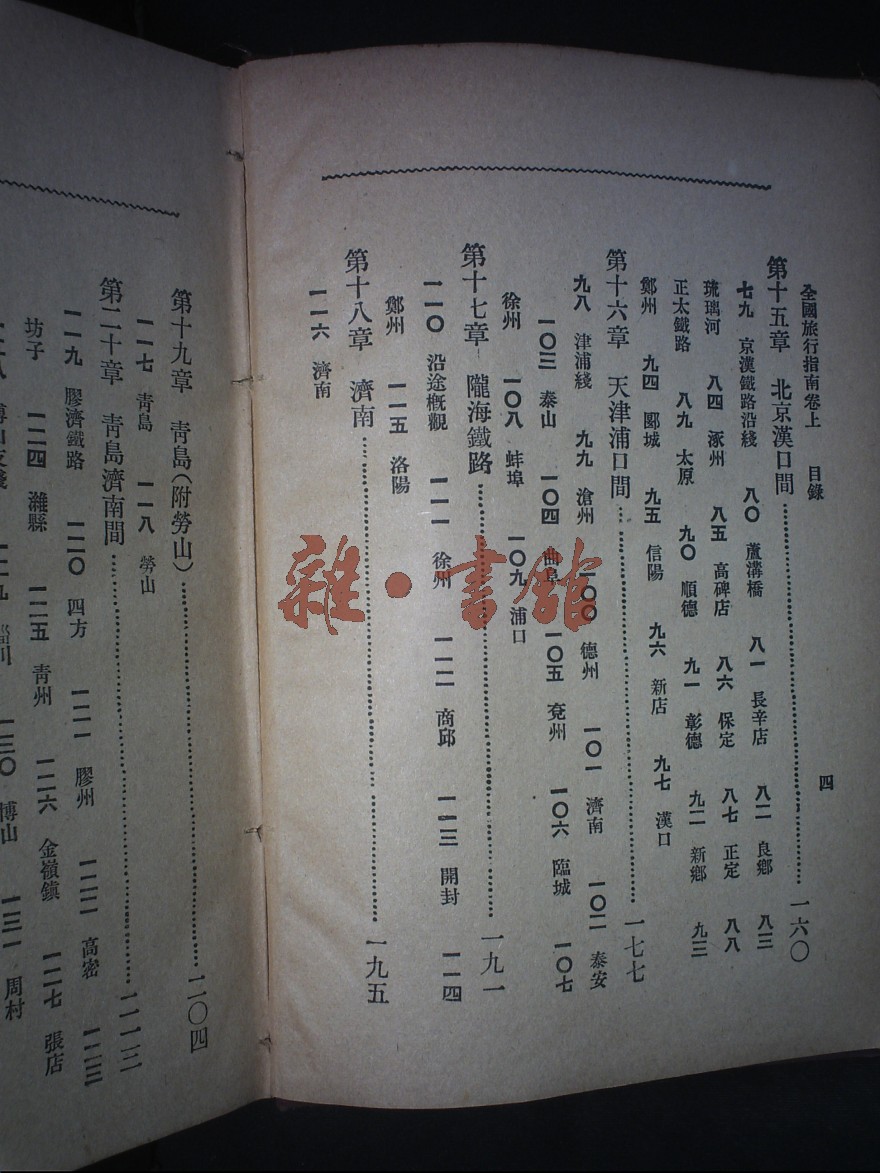 全國旅行指南卷上　目錄　四
第十五章　北京漢口間……一六〇
七九　京漢鐵路沿綫　八〇　蘆溝橋　八一　長辛店　八二　良鄉　八三
琉璃河　八四　涿州　八五　高碑店　八六　保定　八七　正定　八八
正太鐵路　八九　太原　九〇　順德　九一　彰德　九二　新鄉　九三
鄭州　九四　郾城　九五　信陽　九六　新店　九七　漢口
第十六章　天津浦口間……一七七
九八　津浦綫　九九　滄州　一〇〇　德州　一〇一　濟南　一〇二　泰安
一〇三　泰山　一〇四　曲阜　一〇五　兗州　一〇六　臨城　一〇七
徐州　一〇八　蚌埠　一〇九　浦口
第十七章　隴海鐵路……一九一
一一〇　沿途概觀　一一一　徐州　一一二　商邱　一一三　開封　一一四
鄭州　一一五　洛陽
第十八章　濟南……一九五
一一六　濟南
第十九章　青島(附勞山)……二〇四
一一七　青島　一一八　勞山
第二十章　青島濟南間……二一三
一一九　膠濟鐵路　一二〇　四方　一二一　膠州　一二二　高密　一二三
坊子　一二四　濰縣　一二五　青州　一二六　金嶺鎮　一二七　張店
一二八　博山支綫　一二九　川　一三〇　博山　一三一　周村
雜·書館